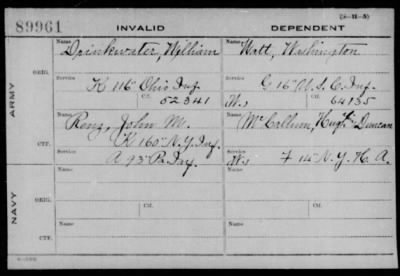 (3-11-5)
89961 INVALID DEPENDENT
ARMY
NAVY
ORIG.
CTF.
ORIG.
CTF.
Name Drinkwater, William
Service K 116" Ohio Inf
Ctf. 52341
Name Watt, Washington
Service G 16" U.S.C. Inf.
W's Ctf. 64135
Name Renz, John M.
K 160" N.Y. Inf.
Service A 93" Pa Inf.
Name McCallum, Hugh Duncan
Service W's F 14" N.Y. H.A.
Name
Service
Ctf.
Name
Service
Ctf.
Name
Service
Name
Service